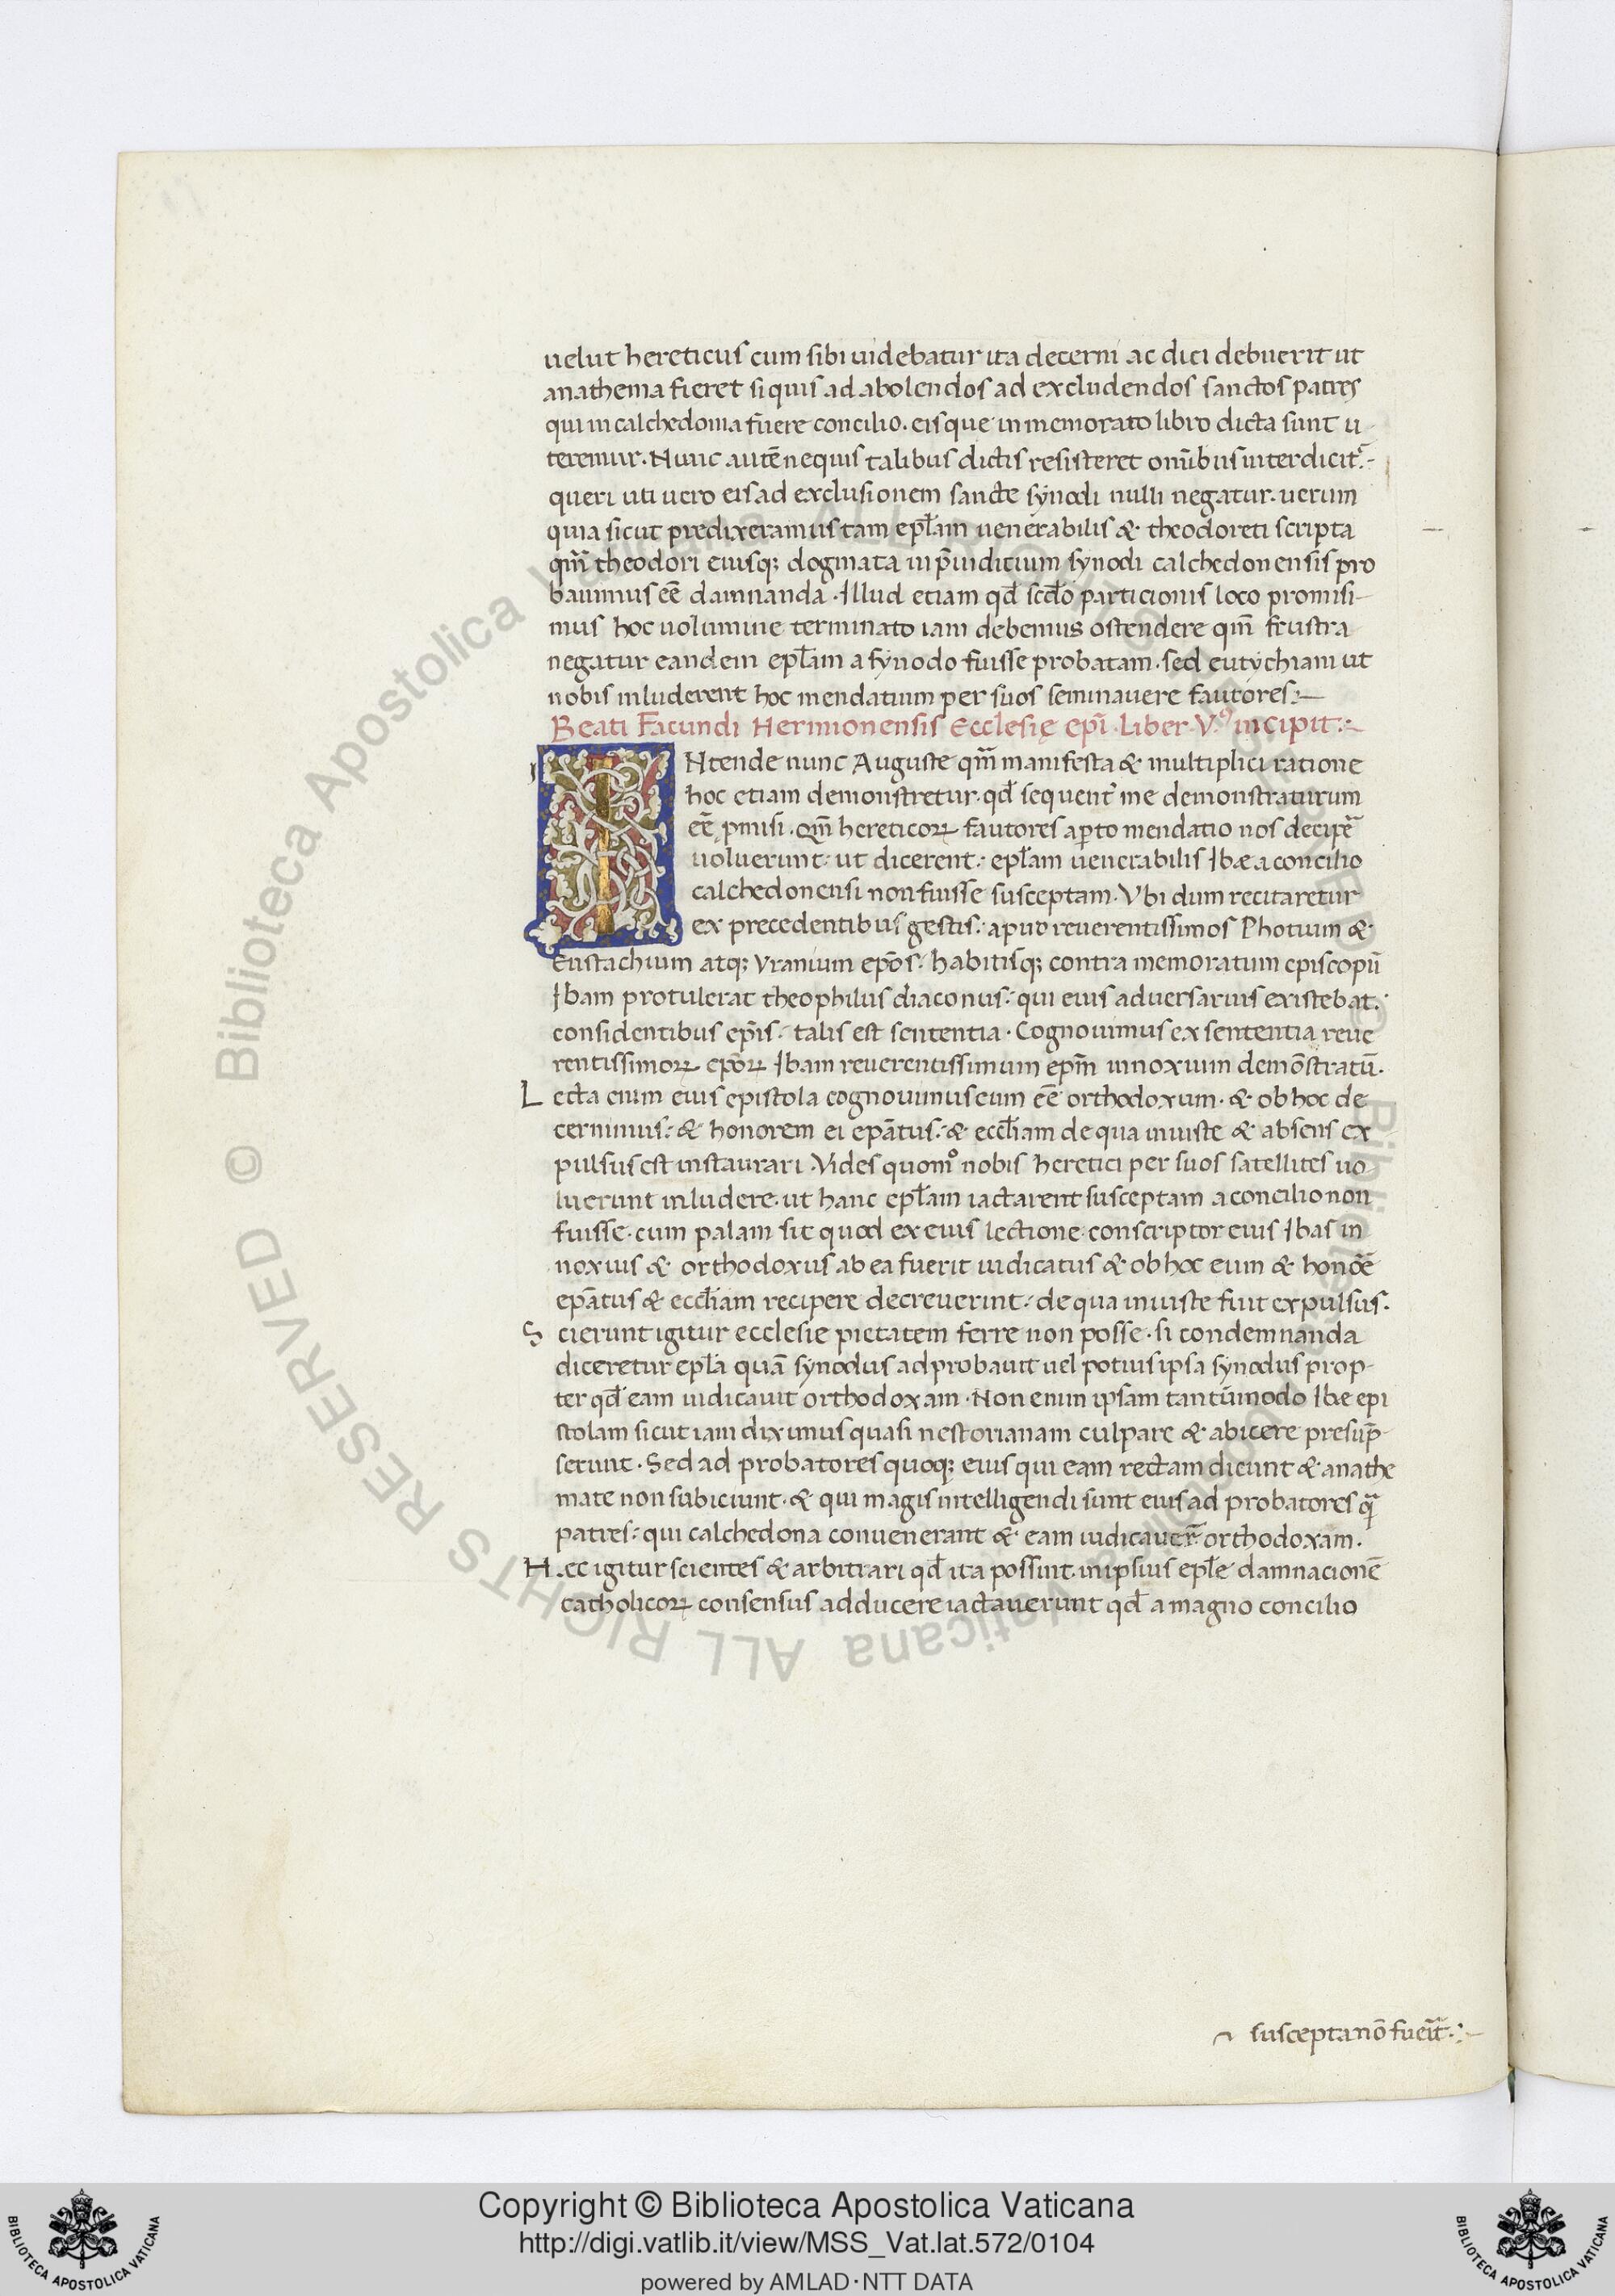 uelut hereticus cum sibi uidebatur ita decerni ac dici debuerit ut
anathema fieret siquis ad abolendos ad excludendos sanctos patres
qui in calchedonia fuere concilio. eisque in memorato libro dicta sunt u
teremur. Nunc autē nequis talibus dictis resisteret om̄ibus interdicit᷑.-
queri uti uero eis ad exclusionem sancte synodi nulli negatur. uerum
quia sicut predixeramus tam epl̄am uenerabilis & theodoreti scripta
qm̄ theodori eiusq; dogmata in p̄iuditium synodi calchedonensis pro
bauimus eē damnanda. Illud etiam qd̄ scd̄o particionis loco promisi-
mus hoc uolumine terminato iam debemus ostendere qm̄ frustra
negatur eandem epl̄am a synodo fuisse probatam. sed eutychiani ut
nobis inluderent hoc mendatium per suos seminauere fautores:-
Beati Facundi Hermionensis Ecclesię epī. Liber. V.us incipit:-
I
Ntende nunc Auguste qm̄ manifesta & multiplici ratione
hoc etiam demonstretur. qd̄ sequent᷑ me demonstraturum
eē ꝓmisi. Qm̄ hereticoꝝ fautores aꝑto mendatio nos decipe᷑
uoluerunt: ut dicerent: epl̄am uenerabilis Ibæ a concilio
calchedonensi non fuisse susceptam. Vbi dum recitaretur
ex precedentibus gestis: aput reuerentissimos Photium &
Eustachium atq; Vranium ep̄os: habitisq; contra memoratum episcopū
Ibam protulerat theophilus diaconus: qui eius aduersarius existebat:
considentibus ep̄is: talis est sententia. Cognouimus ex sententia reue
rentissimoꝝ ep̄oꝝ Ibam reuerentissimum ep̄m innoxium demōstratū.
Lecta enim eius epistola cognouimus eum eē orthodoxum. & ob hoc de
cernimus: & honorem ei ep̄atus: & eccl̄iam de qua iniuste & absens ex
pulsus est instaurari. Vides quomº nobis heretici per suos satellites uo
luerunt inludere. ut hanc epl̄am iactarent susceptam a concilio non
fuisse. cum palam sit quod ex eius lectione conscriptor eius Ibas in
noxius & orthodoxus ab ea fuerit iudicatus & ob hoc eum & honōe᷑
ep̄atus & eccl̄iam recipere decreuerint: de qua iniuste fuit expulsus.
Scierunt igitur ecclesie pietatem ferre non posse. si condemnanda
diceretur epl̄a quā synodus adprobauit uel potius ipsa synodus prop-
ter qd̄ eam iudicauit orthodoxam. Non enim ipsam tantūmodo Ibe epi
stolam sicut iam diximus quasi nestorianam culpare & abicere presūp-
serunt. Sed ad probatores quoq; eius qui eam rectam dicunt & anathe
mate non subiciunt. & qui magis intelligendi sunt eius ad probatores qᷓ
patres: qui calchedona conuenerant & eam iudicauer̄ orthodoxam.
Hec igitur scientes & arbitrari qd̄ ita possint. in ipsius epl̄e damnacionē
catholicoꝝ consensus adducere iactauerunt qd̄ a magno concilio
suscepta nō fuerit᷑.:-
Copyright © Biblioteca Apostolica Vaticana
http://digi.vatlib.it/view/MSS_Vat.lat.572/0104
powered by AMLAD·NTT DATA
BIBLIOTECA APOSTOLICA VATICANA
BIBLIOTECA APOSTOLICA VATICANA
© Biblioteca Apostolica Vaticana ALL RIGHTS RESERVED
© Biblioteca Apostolica Vaticana ALL RIGHTS RESERVED